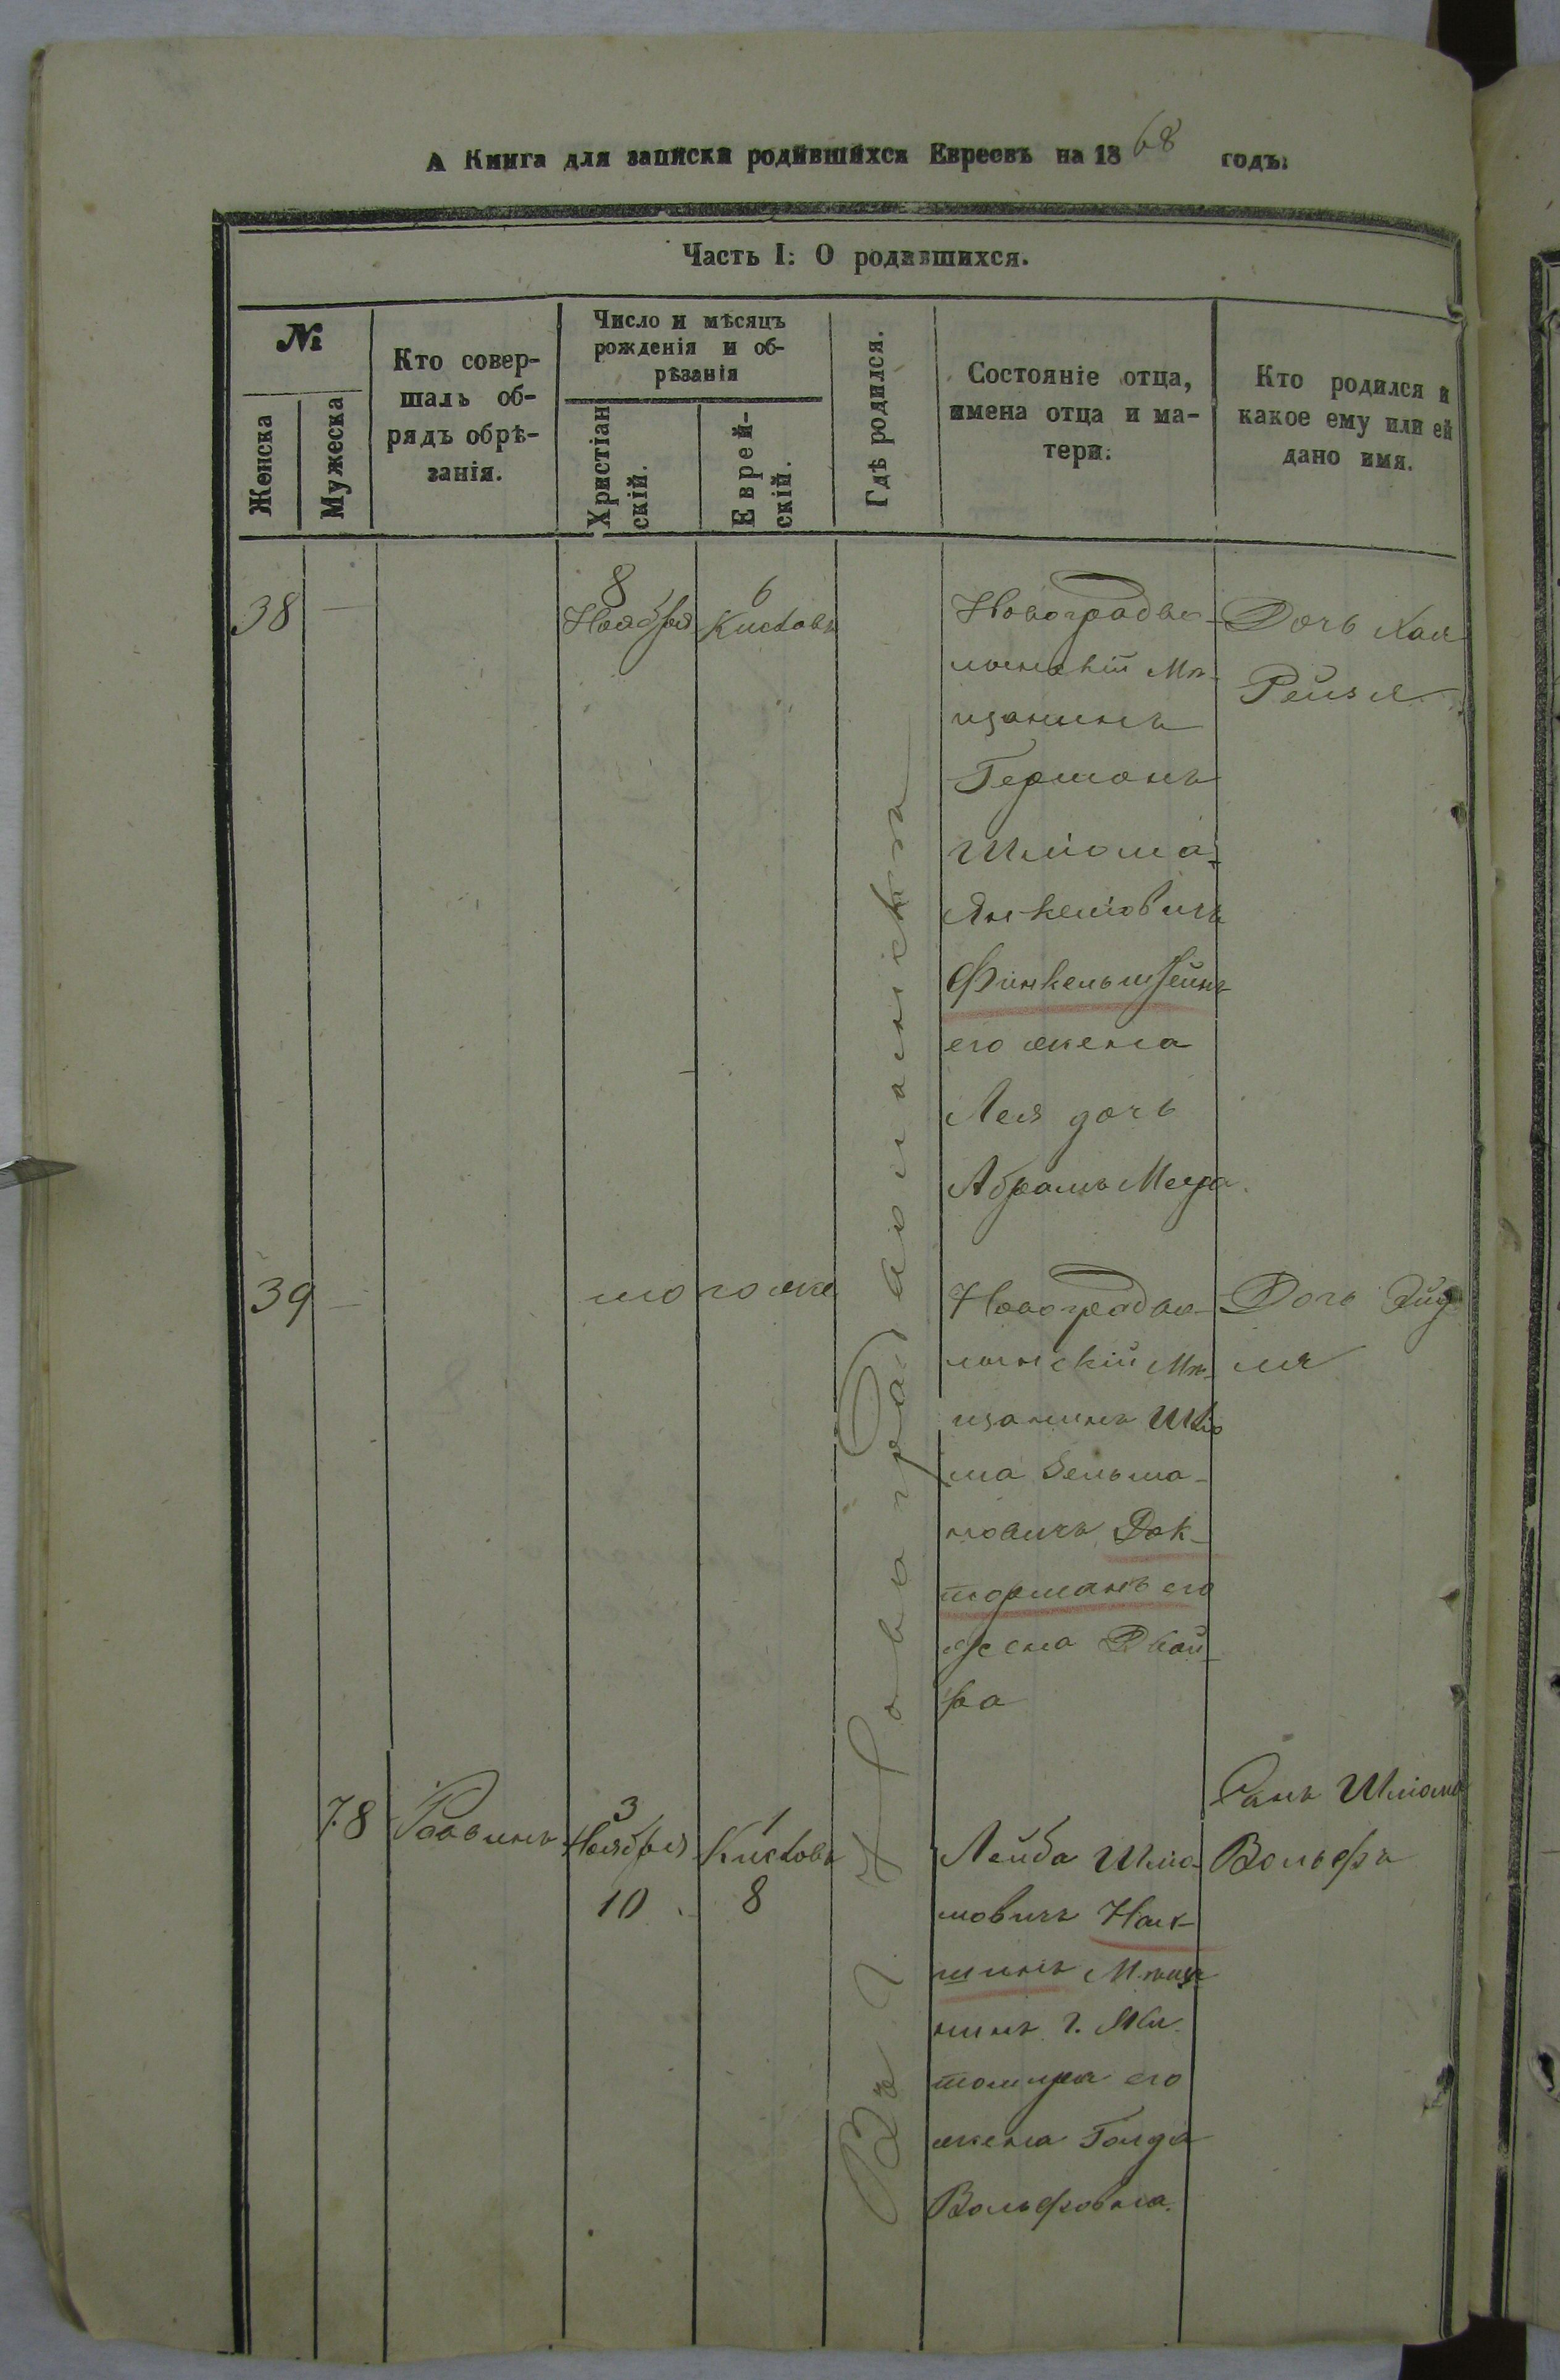 А Книга для записки родившихся Евреевъ на 1868 годъ.
Часть I: О родившихся.
№
Женска
Мужеска
Кто совер-
шалъ об-
рядъ обрѣ-
занія.
Число и мѣсяцъ
рожденія и об-
рѣзанія
Христіан
скій.
Еврей-
скій.
Гдѣ родился.
Состояніе отца,
имена отца и ма-
тери.
Кто родился и
какое ему или ей
дано имя.
Въ г. Новоградволынскѣ
38
—
8
Ноября
6
Кислова
Новоградво-
лынскій Мѣ-
щанинъ
Гершонъ
Шлiома
Янкелiовичъ
Финкельштейнъ
его жена
Лея дочь
Абрамъ Меера
Дочь Хая
Рейзя
39
—
того же
Новоградво-
лынскій Мѣ-
щанинъ Шлiо
ма Зельма-
новичъ Док-
торманъ его
жена Двой-
ра
Дочь
78
Раввинъ
3
Ноября
10
1
Кислова
8
Лейба Шлiо-
мовичъ
Мѣща
нинъ г. Жи-
томира его
жена Голда
Вольфовна.
Сынъ Шлiома
Вольфъ